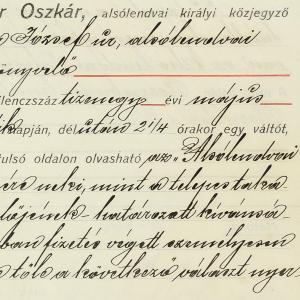 r Oszkár, alsólendvai királyi közjegyző
József úr, alsólendvai
önyvelő
lenczszáz tizenegy évi május
ik napján, délután 2 1/4 órakor egy váltót,
tulsó oldalon olvasható az „Alsólendvai
ére neki, mint a telepes taka-
lőjének határozott kivánsá-
ban fizetés végett személyesen
tőle a következő választ nyer-